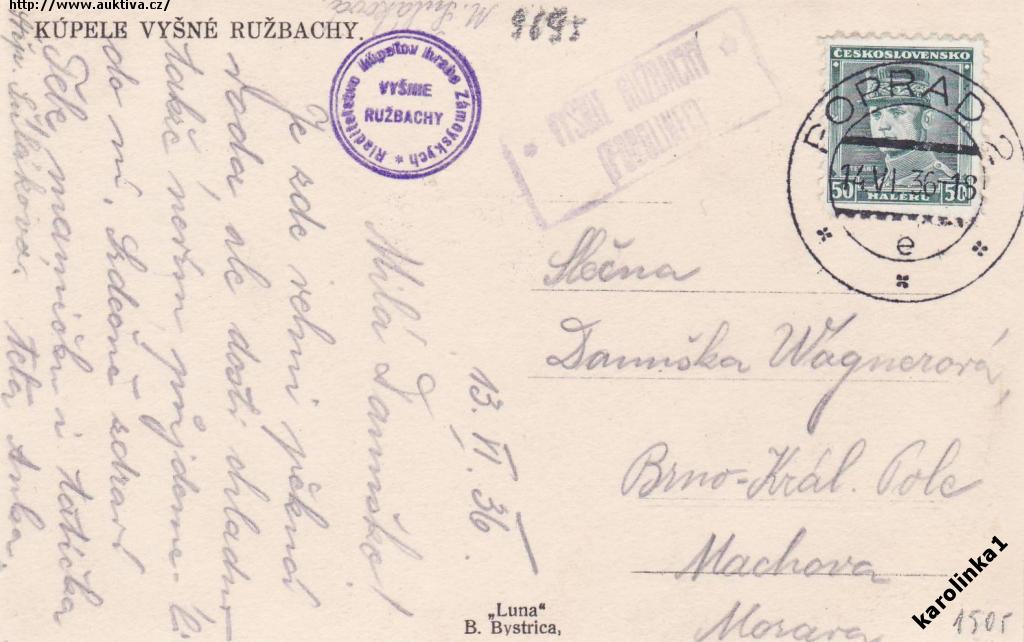 http://www.auktiva.cz/
KÚPELE VYŠNÉ RUŽBACHY.
9695
Riaditelstvo kúpeľov hrabě Zámoyských *
VYŠNIE
RUŽBACHY
* VYŠNIE RUŽBACHY *
(PODOLINEC)
ČESKOSLOVENSKO
50 HALÉŘŮ 50
POPRAD 2
14.VI.36-18
e
13. VI. 36.
Milá Danuško!
Je zde velmi pěkná
voda, ale dosti chladno
takže nevím půjdeme-li
do ní. Srdečně zdraví
Tebe, maminku i tatíčka
teta Anka.
M. Sulaková
Slečna
Danuška Wagnerová
Brno-Král. Pole
Machova
Morava
„Luna“
B. Bystrica,
karolinka1
1505